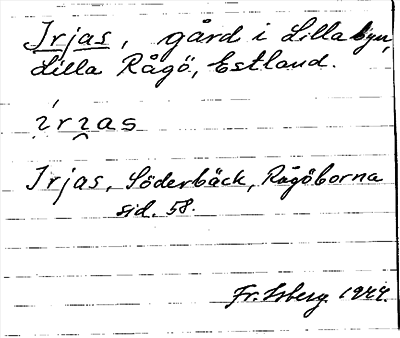 Irjas, gård i Lilla byn,
Lilla Rågö, Estland.
Irjas, Söderbäck, Rågöborna
sid. 58.
Fr. Isberg 1944.